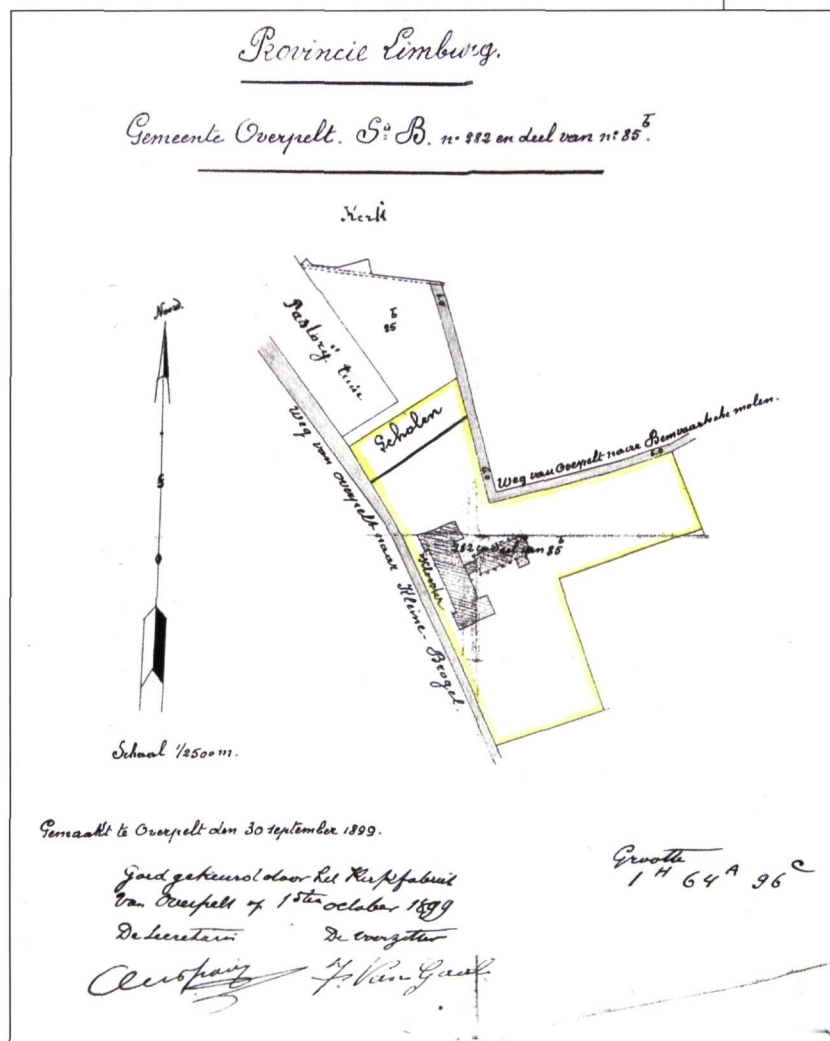 Provincie Limburg.
Gemeente Overpelt. Sie B. n° 282 en deel van n° 85 b.
Kerk
Noord.
Pastorij tuin
b
85
6.0
Scholen
Weg van Overpelt naar Kleine-Brogel.
6.0
Weg van Overpelt naar Bemvaartsche molen.
6.0
282 en deel van 85 b
klooster
Schaal 1/2500 m.
Gemaakt te Overpelt den 30 september 1899.
Goed gekeurd door het Kerkfabriek
van Overpelt op 1sten october 1899
De Secretaris De voorzitter
J. Van Gaal
Grootte
1 H 64 A 96 C